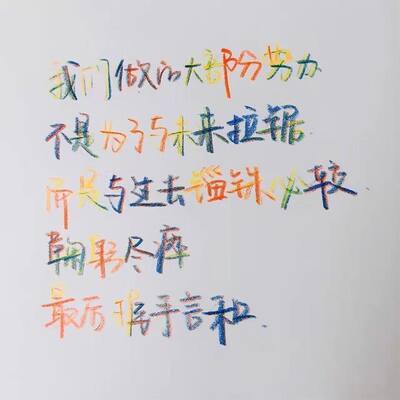 我们做的大部分努力
不是为了与未来拉锯
而是与过去锱铢必较
鞠躬尽瘁
最后握手言和.